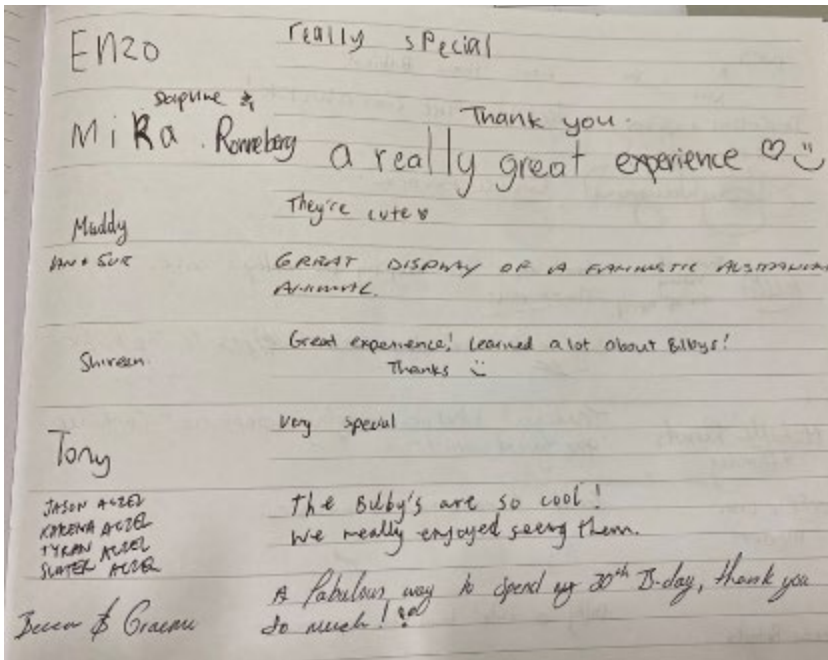 Enzo really special
Daphne &
Mira Ronneberg Thank you.
a really great experience
Maddy They're cute
IAN & SUE GREAT DISPLAY OF A FANTASTIC AUSTRALIAN
ANIMAL.
Shireen. Great experience! Learned a lot about Bilbys!
Thanks
Tony Very special
JASON ACZEL The Bilby's are so cool!
KARENA ACZEL We really enjoyed seeing them.
TYRAN ACZEL
SLATER ACZEL
Becca & Graeme A fabulous way to spend my 30th B-day, thank you
so much!